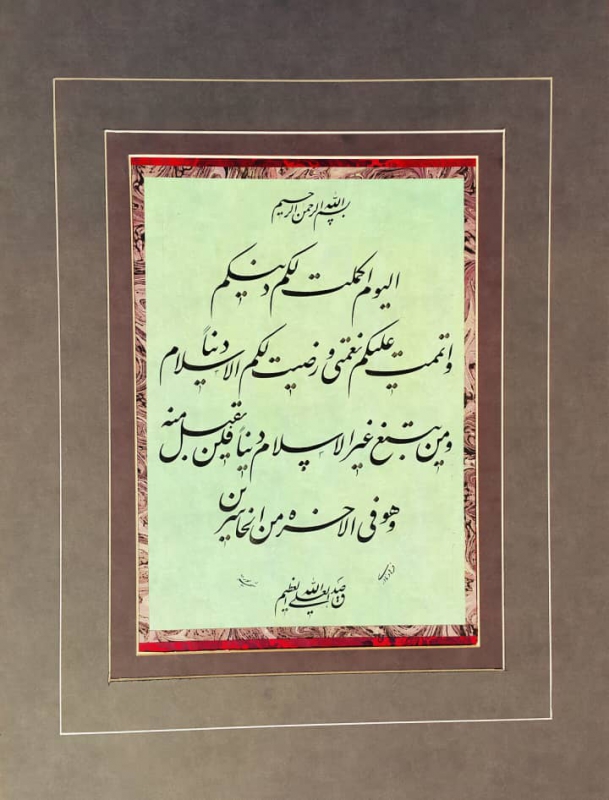 بسم الله الرحمن الرحیم
الیوم اکملت لکم دینکم
واتممت علیکم نعمتی و رضیت لکم الاسلام دیناً
ومن یبتغ غیر الاسلام دیناً فلن یقبل منه
وهو فی الاخره من الخاسرین
صدق الله العلی العظیم